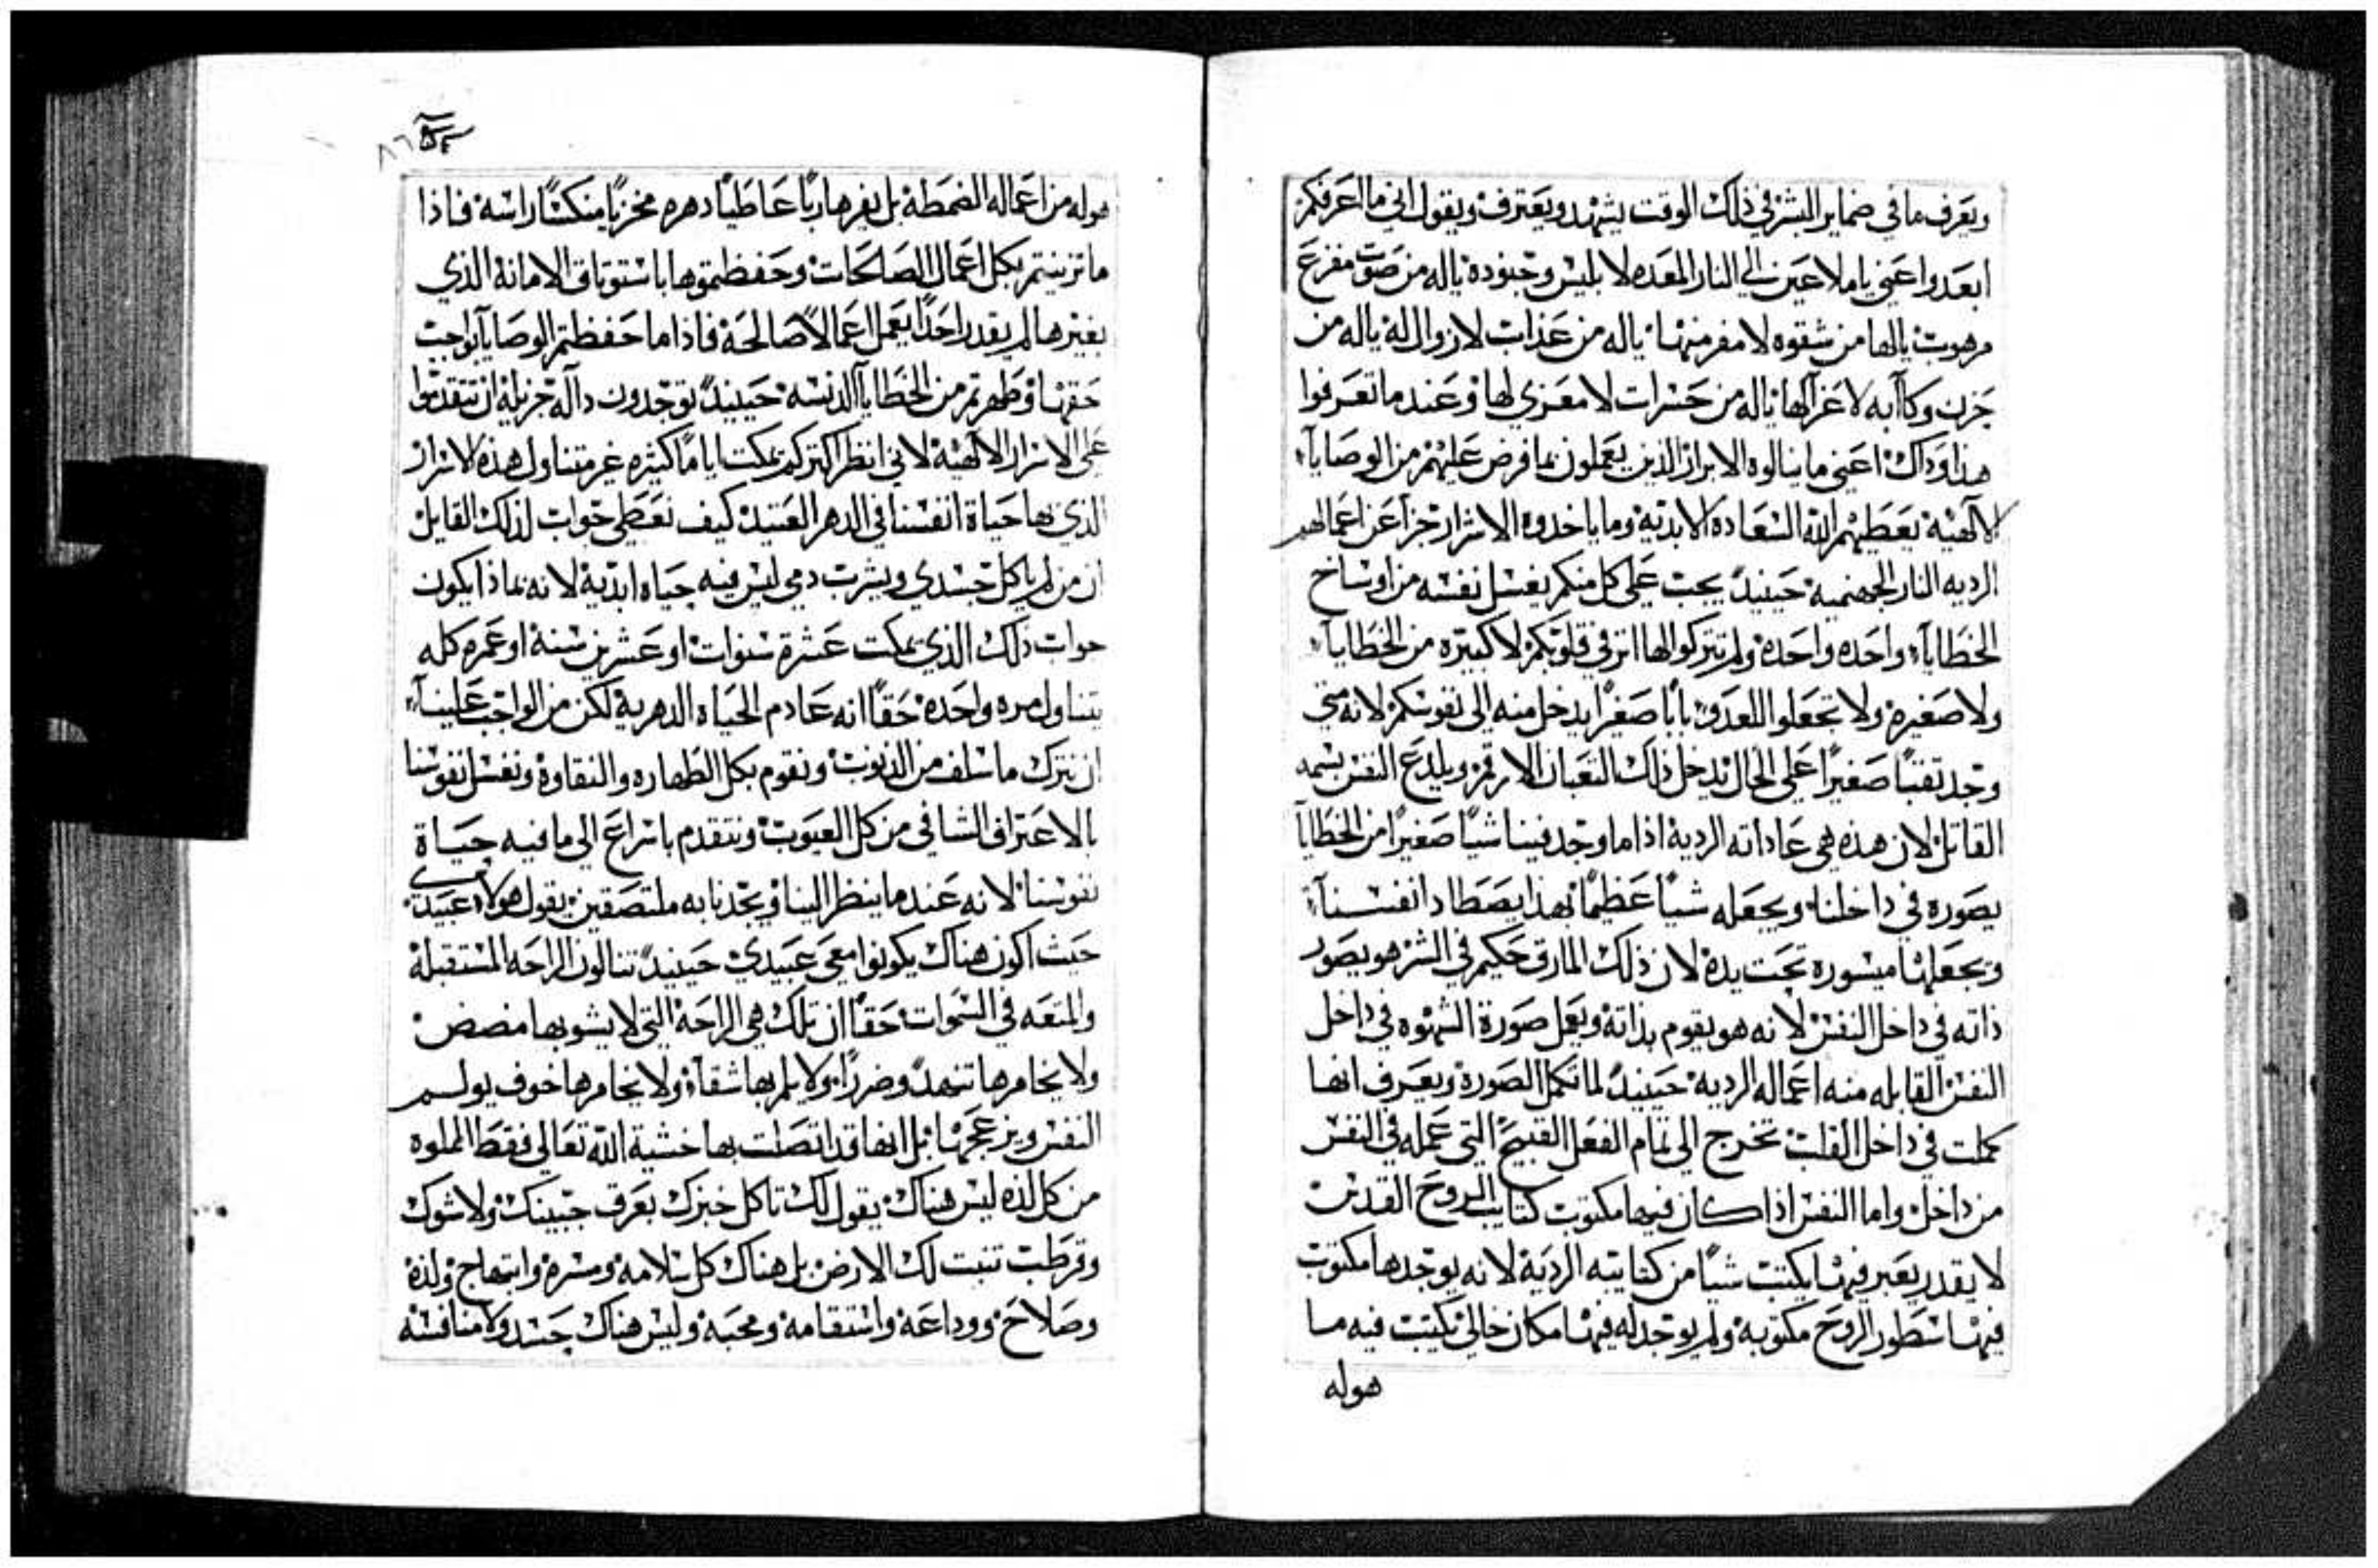 ويعرف ما في ضماير البشر في ذلك الوقت يشهد ويعترف ويقول اني ما اعرفكم
ابعدوا عني يا ملاعين الي النار المعده لابليس وجنوده ياله من صوت مفزع
مرهوب يالها من شقوه لا مفر منها ياله من عذاب لا زوال له ياله من
حزن وكاآبه لا عزآ لها ياله من حسرات لا معزي لها وعند ما تعرفوا
هذا وذاك اعني ما ينالوه الابرار الذين يعملون بما فرض عليهم من الوصايآ
الالهية يعطيهم الله السعاده الابدية وما ياخدوه الاشرار جزآ عن اعمالهم
الرديه النار الجهنميه حينيدً يجب علي كل منكم يغسل نفسه من اوساخ
الخطايآ واحده واحده ولم تتركوا لها اثر في قلوبكم لا كبيره من الخطايآ
ولا صغيره ولا تجعلوا للعدو باباً صغراً يدخل منه الي نفوسكم لانه متي
وجد تقباً صغيراً علي الحال يدخل ذلك التعبان الارقم ويلدع النفس بسمه
القاتل لان هذه هي عاداته الردية اذا ما وجد فينا شياً صغيراً من الخطايآ
يصوره في داخلنا ويجعله شياً عظيماً بهذا يصطاد انفسنآ
ويجعلنا ميسورة تحت يده لان ذلك المارق حكيم في الشر هو يصور
ذاته في داخل النفس لانه هو يقوم بذاته ويعمل صورة الشهوه في داخل
النفس القابله منه اعماله الرديه حينيدً لما تكمل الصورة ويعرف انها
كملت في داخل القلب تخرج الي تمام الفعل القبيح التي عمله في النفس
من داخل واما النفس اذا كان فيها مكتوب كتاب الروح القدس
لا يقدر يعبر فيها يكتب شياً من كتابته الردية لانه يوجدها مكتوب
فيها سطور الروح مكتوبة ولم يوجد له فيها مكان خالي يكتب فيه ما
هوله
٨٦
هوله من اعماله الضمطة بل يفر هارباً عاطياً دهره مخزياً منكساً راسه فاذا
ما تزينتم بكل اعمال الصالحات وحفظتموها باستوتاق الامانة الذي
بغيرها لم يقدر احداً يعمل اعمالاً صالحة فاذا ما حفظتم الوصايآ بواجب
حقها وطهرتم من الخطايآ الدنسه حينيدً توجدون دآلة جزيلة ان تتقدموا
علي الاسرار الالهية لاني انظر اكتركم يمكت اياماً كثيره غير متناول هذه الاسرار
الذي بها حياة انفسنا في الدهر العتيد كيف نعطي جواب لذلك القايل
ان من لم ياكل جسدي ويشرب دمي ليس فيه حياه ابدية لانه بماذا يكون
جواب ذلك الذي يمكت عشرة سنوات او عشرين سنة او عمره كله
يتناول مره واحده حقاً انه عادم الحياه الدهرية لكن من الواجب علينآ
ان نترك ما سلف من الذنوب ونقوم بكل الطهاره والنقاوة ونغسل نفوسنا
بالاعتراف الشافي من كل العيوب ونتقدم باسراع الي ما فيه حياة
نفوسنا لانه عند ما ينظر الينا ويجدنا به ملتصقين يقول هولاء عبيدي
حيث اكون هناك يكونوا معي عبيدي حينيدً تنالون الراحه المستقبلة
والمتعه في السموات حقاً ان تلك هي الراحة التي لا يشوبها مضض
ولا يخامرها تنهدً وضرراً ولا يلم بها شقآ ولا يخامرها خوف يولم
النفس ويزعجها بل انها قد اتصلت بها خشية الله تعالي فقط المملوه
من كل لذه ليس هناك يقول لك تاكل خبزك بعرق جبينك ولا شوك
وقرطب تنبت لك الارض بل هناك كل سلامه ومسرة وابتهاج ولذة
وصلاح ووداعة واستقامة ومحبة وليس هناك حسد ولا منافسة